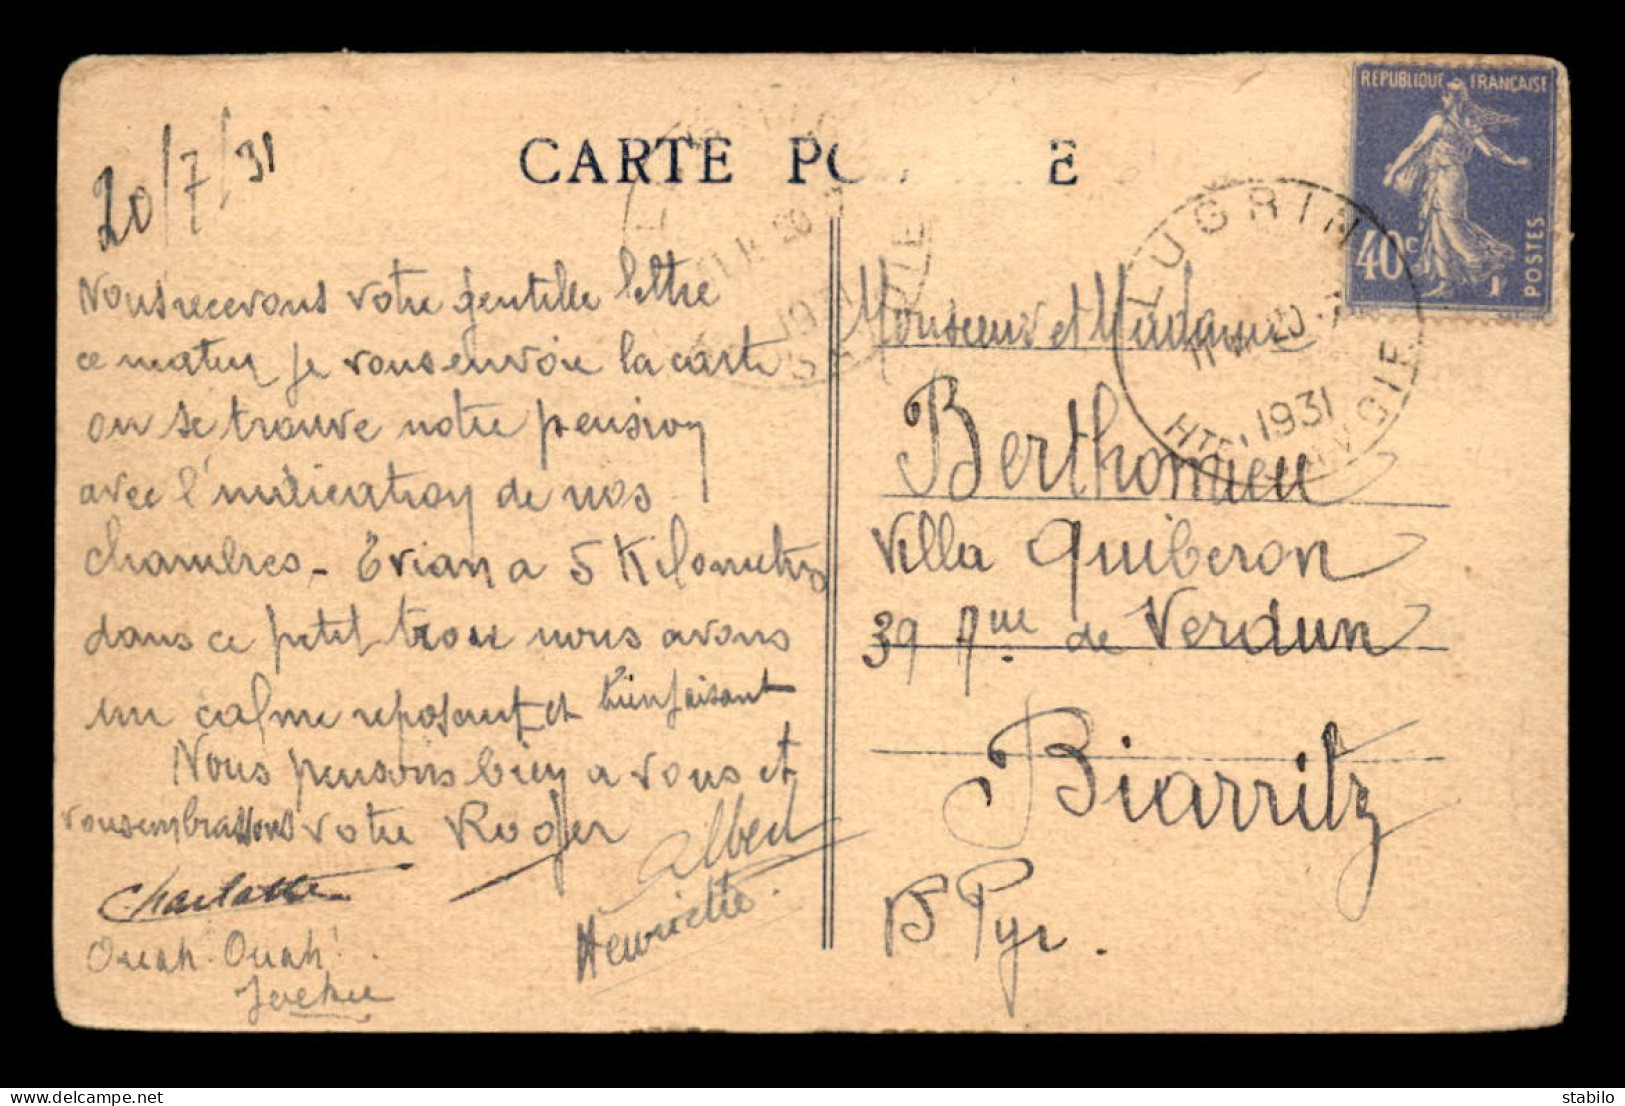 CARTE PO E
20/7/31
Nous recevons votre gentille lettre
ce matin je vous envoie la carte
ou se trouve notre pension
avec l'indication de nos
chambres - Evian a 5 Kilometres
dans ce petit trou nous avons
un calme reposant et bienfaisant
Nous pensons bien a vous et
vous embrassons votre Roger
Albert
Charlotte
Henriette.
Ouah. Ouah!
REPUBLIQUE FRANÇAISE
40c
POSTES
LUGRIN
11 20 7
1931
HTE SAVOIE
Monsieur et Madame
Berthomieu
Villa Quiberon
39 Aue de Verdun
Biarritz
B Pyr.
delcampe.net
stabilo